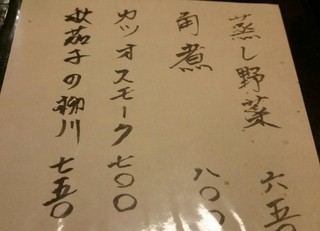 蒸し野菜 六五〇
角煮 八〇〇
カツオスモーク 七〇〇
秋茄子の柳川 七五〇